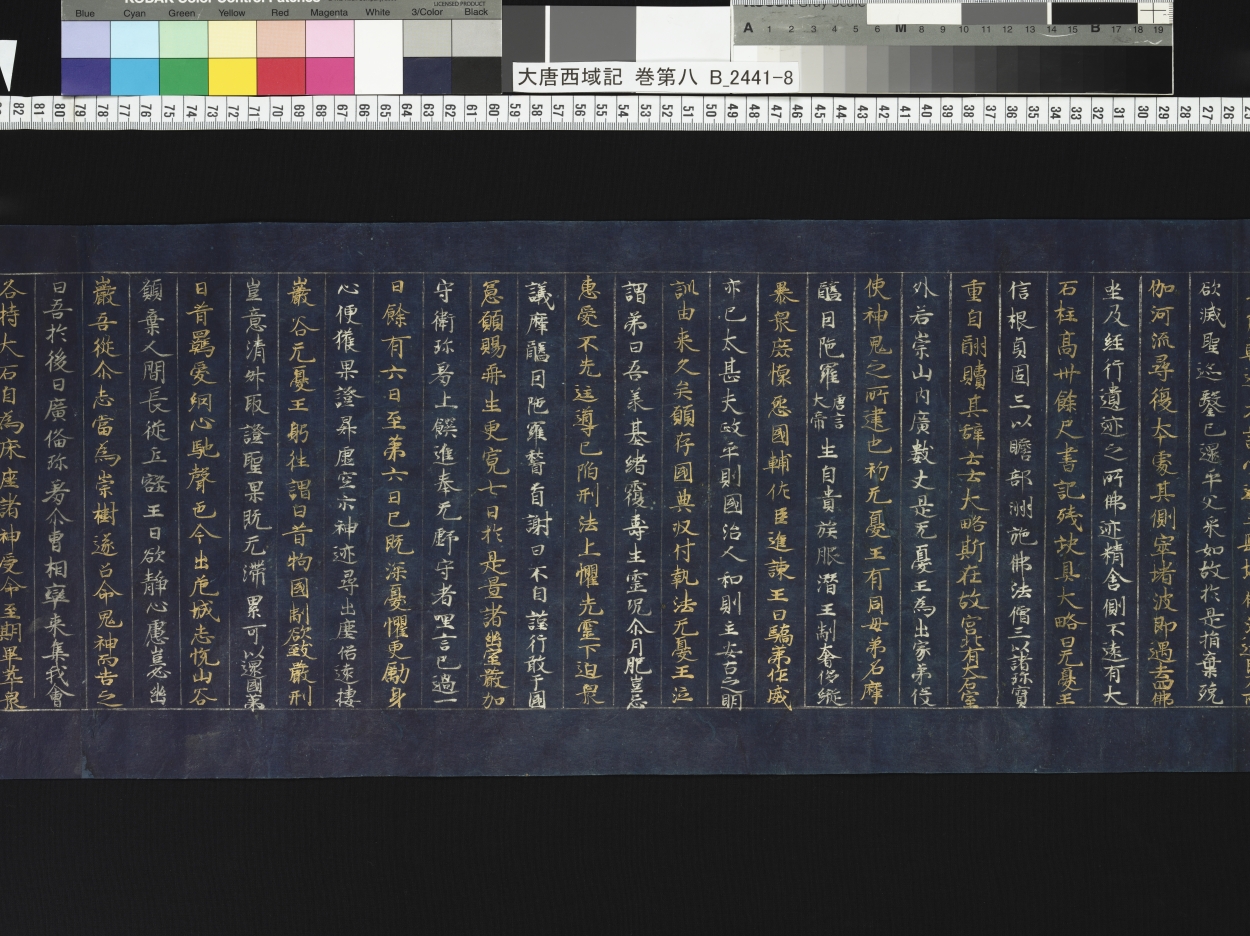 KODAK Color Control Patches
LICENSED PRODUCT
Blue Cyan Green Yellow Red Magenta White 3/Color Black
A 1 2 3 4 5 6 M 8 9 10 11 12 13 14 15 B 17 18 19
大唐西域記 巻第八 B_2441-8
82 81 80 79 78 77 76 75 74 73 72 71 70 69 68 67 66 65 64 63 62 61 60 59 58 57 56 55 54 53 52 51 50 49 48 47 46 45 44 43 42 41 40 39 38 37 36 35 34 33 32 31 30 29 28 27 26
欲滅聖迹鑿已還平文采如故於是捐棄殑
伽河流尋復本處其側窣堵波即過去四佛
坐及經行遺迹之所佛迹精舍側不遠有大
石柱高卅餘尺書記殘缺其大略曰无憂王
信根貞固三以贍部洲施佛法僧三以諸珍寶
重自酬贖其辭云云大略斯在故宮北有大石室
外若崇山內廣數丈是无憂王爲出家弟役
使神鬼之所建也初无憂王有同母弟名摩
醯因陁羅唐言大帝生自貴族服潛王制奢侈縱
暴衆庶懷怨國輔佐臣進諫王曰驕弟作威
亦已太甚夫政平則國治人和則主安古之明
訓由來久矣願存國典収付執法无憂王泣
謂弟曰吾承基緒覆燾生靈況尒同胞豈忘
惠愛不先匡導已陷刑法上懼先靈下迫衆
議摩醯因陁羅稽首謝曰不自謹行敢于國
憲願賜再生更寬七日於是置諸幽室嚴加
守衛珍羞上饌進奉无虧守者唱言已過一
日餘有六日至第六日已旣深憂懼更勵身
心便獲果證昇虛空示神迹尋出塵俗遠棲
巖谷无憂王躬往謂曰昔拘國制欲致嚴刑
豈意清昇取證聖果旣无滯累可以還國弟
曰昔羈愛網心馳聲色今出危城志悅山谷
願棄人間長從丘壑王曰欲靜心慮豈必幽
巖吾從尒志當爲崇樹遂召命鬼神而告之
曰吾於後日廣備珍羞尒曹相率來集我會
各持大石自爲床座諸神受命至期畢萃衆